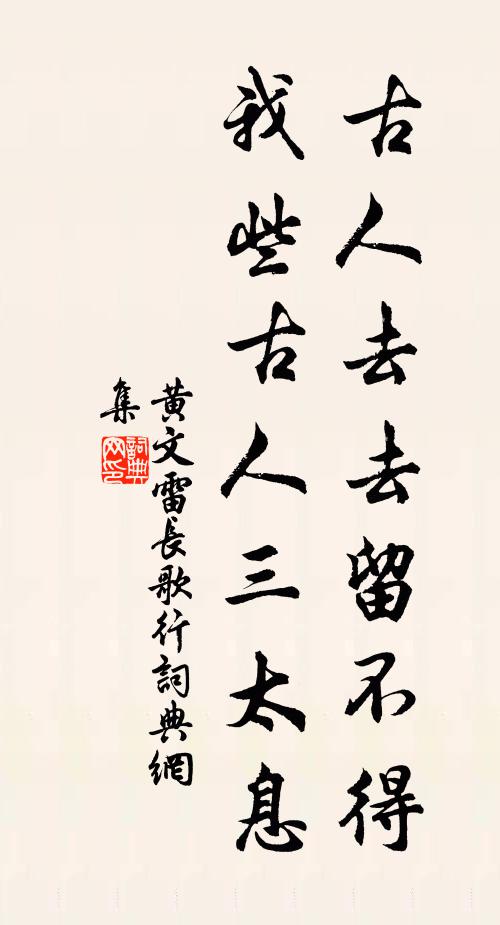 古人去去留不得
我些古人三太息
黄文雷長歌行詞典網
集
詞典网印